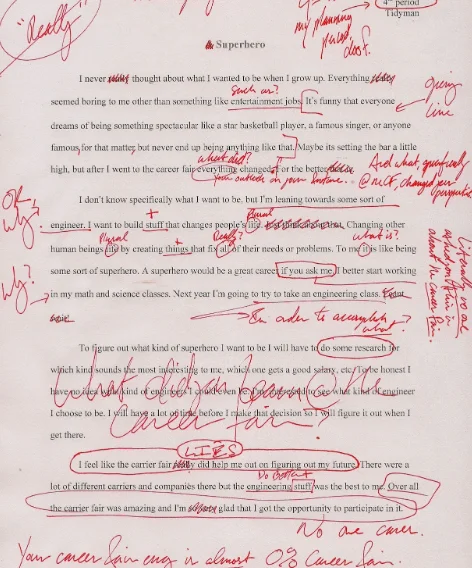 "Really"
4th period
Tidyman
my planning
period
doesn't.
Superhero
I never really thought about what I wanted to be when I grow up. Everything
such as?
seemed boring to me other than something like entertainment jobs. It's funny that everyone
dreams of being something spectacular like a star basketball player, a famous singer, or anyone
famous, for that matter, but never end up being anything like that. Maybe its setting the bar a little
what did?
high, but after I went to the career fair everything changed for the better
And what, specifically
changed your
I don't know specifically what I want to be, but I'm leaning towards some sort of
OK,
why?
Plural
engineer. I want to build stuff that changes people's life. Changing other
Plural
Really?
what is?
human beings life by creating things that fix all of their needs or problems. To me it is like being
some sort of superhero. A superhero would be a great career if you ask me. I better start working
Why?
in my math and science classes. Next year I'm going to try to take an engineering class.
In order to accomplish
what?
about the career fair.
To figure out what kind of superhero I want to be I will have to do some research for
which kind sounds the most interesting to me, which one gets a good salary, etc. To be honest I
I choose to be. I will have a lot of time before I make that decision so I will figure it out when I
get there.
What did you learn @ the
career fair?
LIES
I feel like the carrier fair really did help me out on figuring out my future. There were
Do Better
a lot of different carriers and companies there but the engineering stuff was the best to me. Over all
the carrier fair was amazing and I'm glad that I got the opportunity to participate in it.
No one cares.
Your career fair eng is almost 0% Career fair.